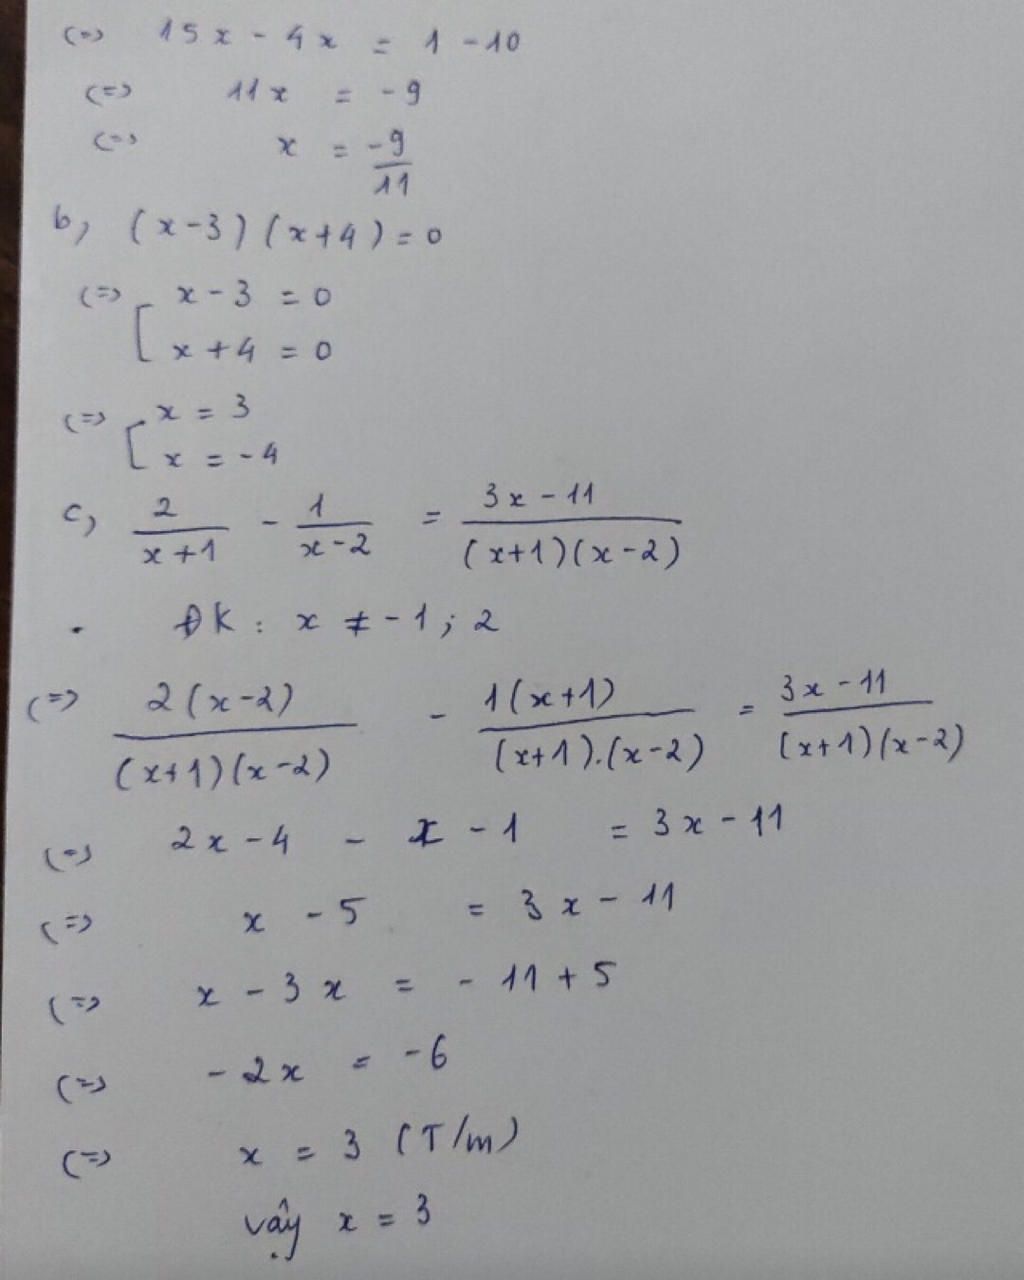 (=) 15x - 4x = 1 - 10
(=) 11x = -9
(=) x = -9/11
b, (x-3)(x+4)=0
(=) [ x - 3 = 0
x + 4 = 0
(=) [ x = 3
x = -4
c, 2/(x+1) - 1/(x-2) = (3x-11)/((x+1)(x-2))
ĐK: x ≠ -1; 2
(=) 2(x-2)/((x+1)(x-2)) - 1(x+1)/((x+1).(x-2)) = (3x-11)/((x+1)(x-2))
(=) 2x - 4 - x - 1 = 3x - 11
(=) x - 5 = 3x - 11
(=) x - 3x = -11 + 5
(=) -2x = -6
(=) x = 3 (T/m)
vậy x = 3